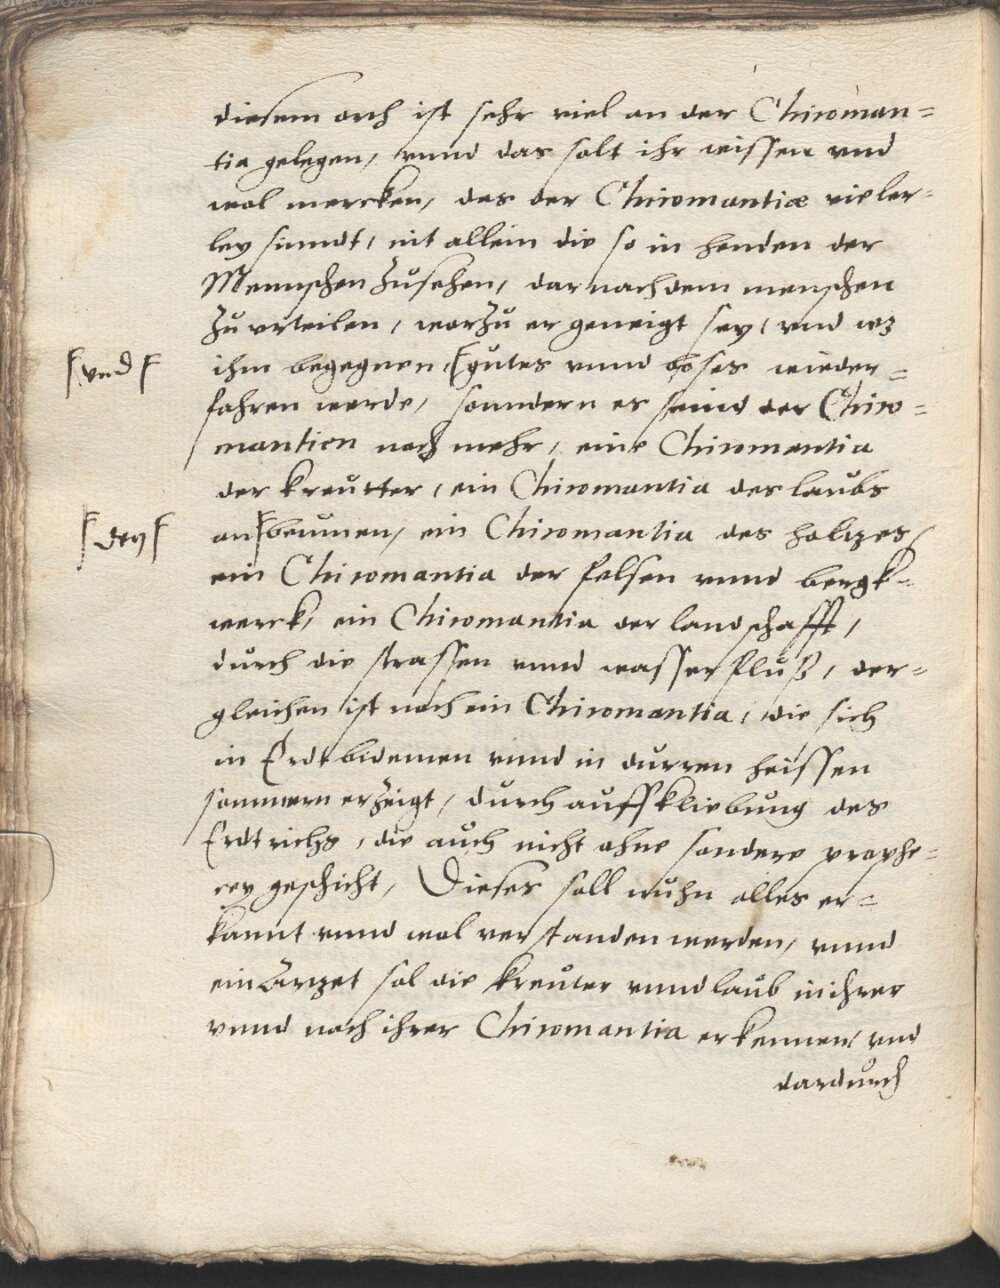 diesem auch ist sehr viel an der Chiroman=
tia gelegen, vnnd das solt ihr wissen vnd
wol mercken, das der Chiromantiæ vieler=
ley sinndt, nit allein die so in henden der
Mennschen zusehen, darnach dem menschen
zu vrteilen, warzu er geneigt sey, vnd wz
⌈vnd⌈ ihm begegnen, ⌈gutes vnnd böses wieder=
fahren werde, sonndern es seind der Chiro=
mantien noch mehr, eine Chiromantia
der kreutter, ein Chiromantia des laubs
⌈den⌈ an⌈beumen, ein Chiromantia des holtzes,
ein Chiromantia der felsen vnnd bergk=
werck, ein Chiromantia der landschafft,
durch die strassen vnnd wasserfluß, der=
gleichen ist noch ein Chiromantia, die sich
in Erdtbidemen vnnd in durren heissen
sommern erzeigt, durch auffkliebung des
Erdtrichs, die auch nicht ohne sondere prophe=
cey geschicht, Dieses soll nuhn alles er=
kannt vnnd wol verstanden werden, vnnd
ein Artzet sol die kreuter vnnd laub in ihrer
vnnd nach ihrer Chiromantia erkennen, vnd
dardurch